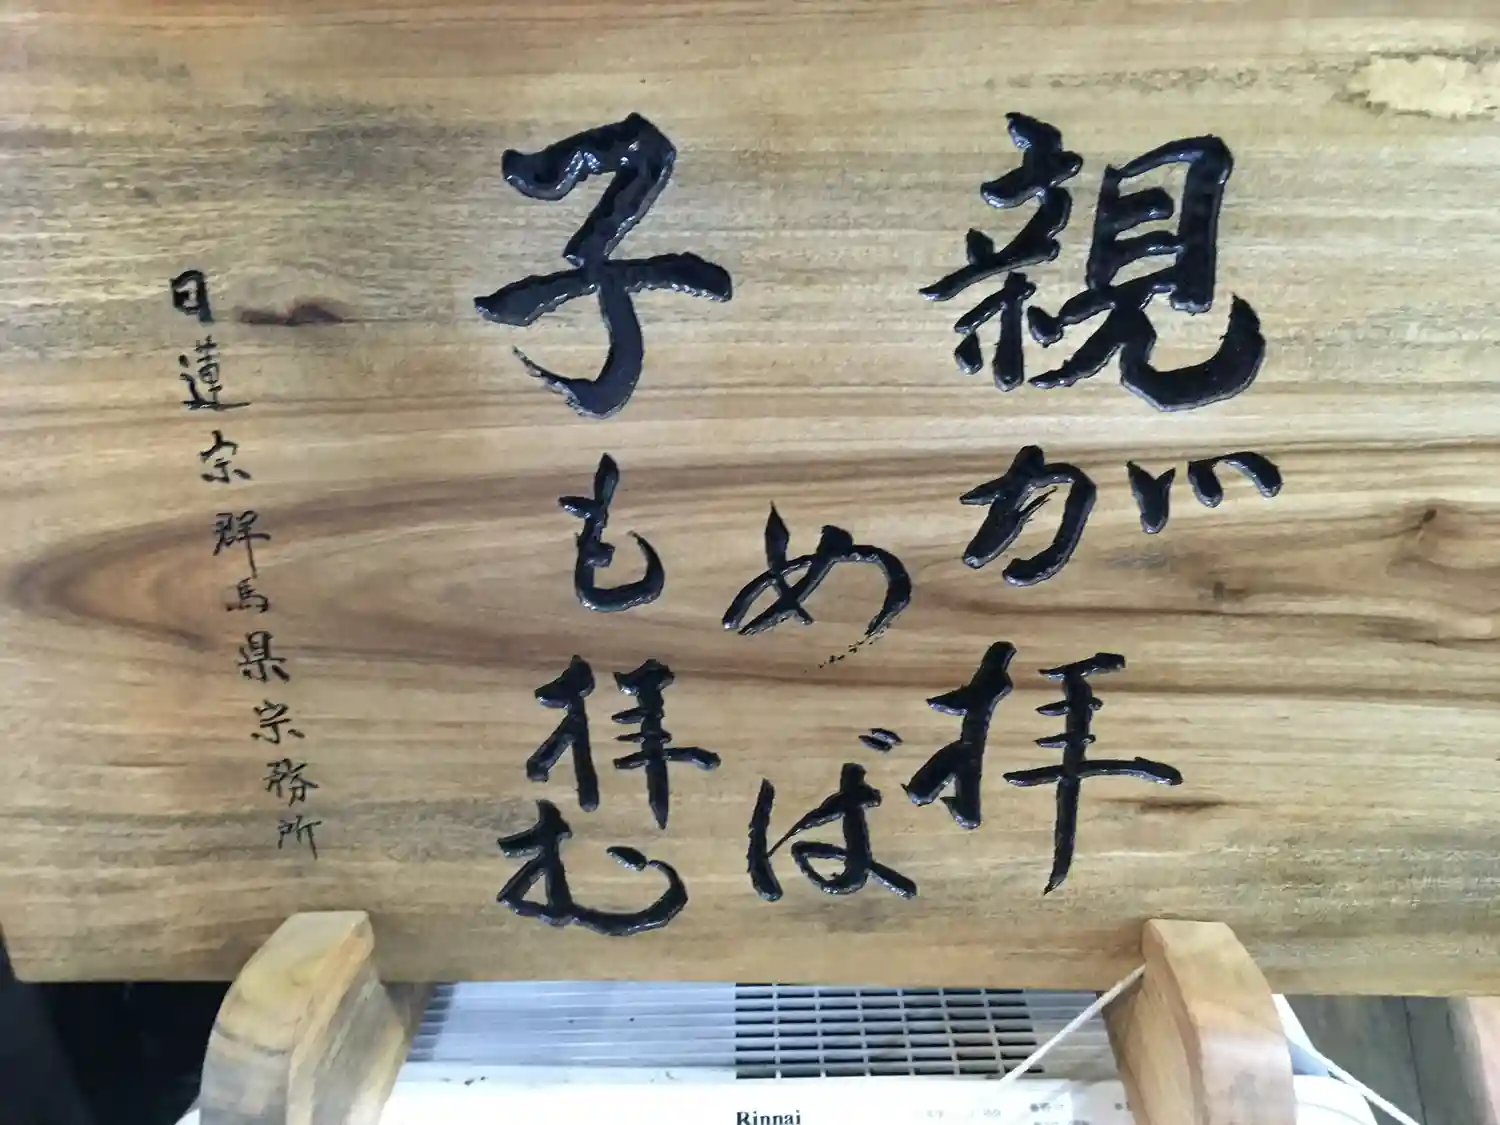 親が拝
めば
子も拝む
日蓮宗群馬県宗務所
Rinnai